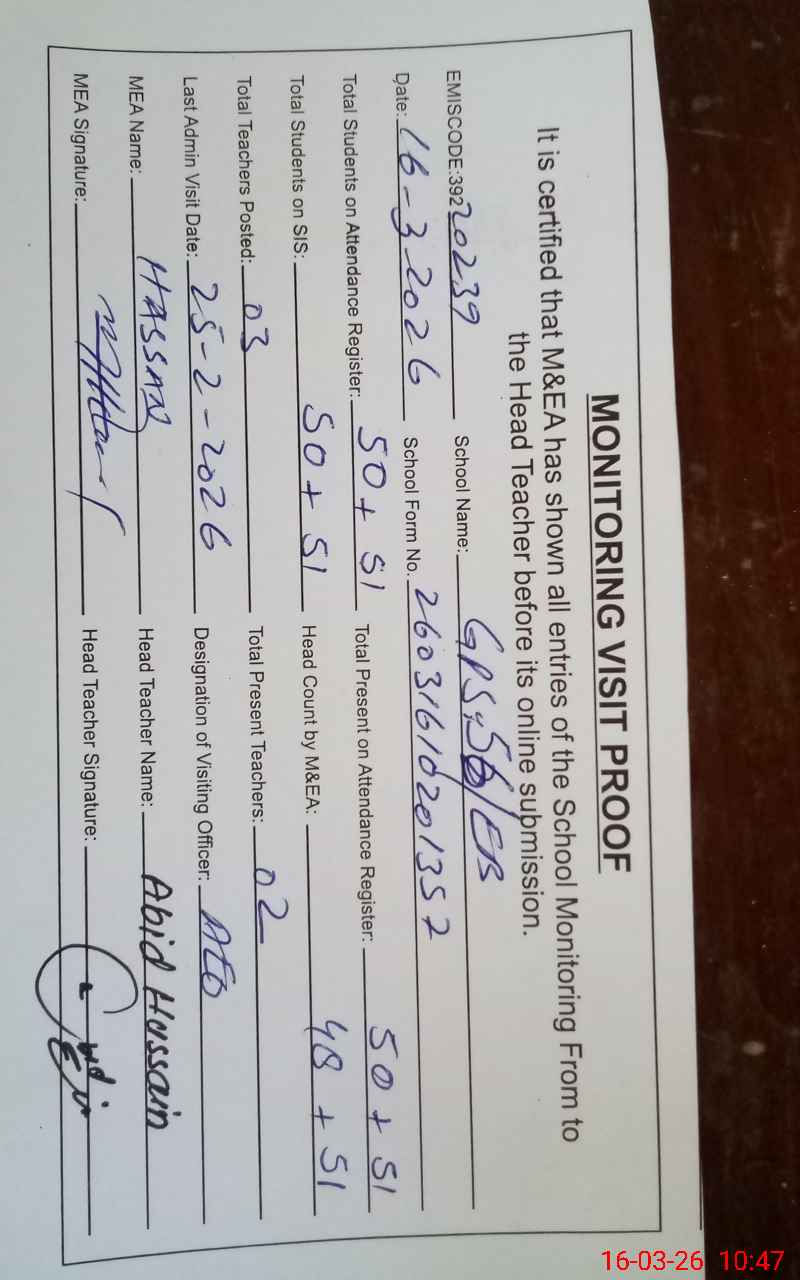 MONITORING VISIT PROOF
It is certified that M&EA has shown all entries of the School Monitoring From to
the Head Teacher before its online submission.
EMISCODE:39220239 School Name: GPS, 56/EB
Date: 16-3-2026 School Form No. 26031610201357
Total Students on Attendance Register: 50 + 51 Total Present on Attendance Register: 50 + 51
Total Students on SIS: 50 + 51 Head Count by M&EA: 48 + 51
Total Teachers Posted: 03 Total Present Teachers: 02
Last Admin Visit Date: 25-2-2026 Designation of Visiting Officer: AEO
MEA Name: HASSAN Head Teacher Name: Abid Hussain
MEA Signature: Head Teacher Signature:
16-03-26 10:47